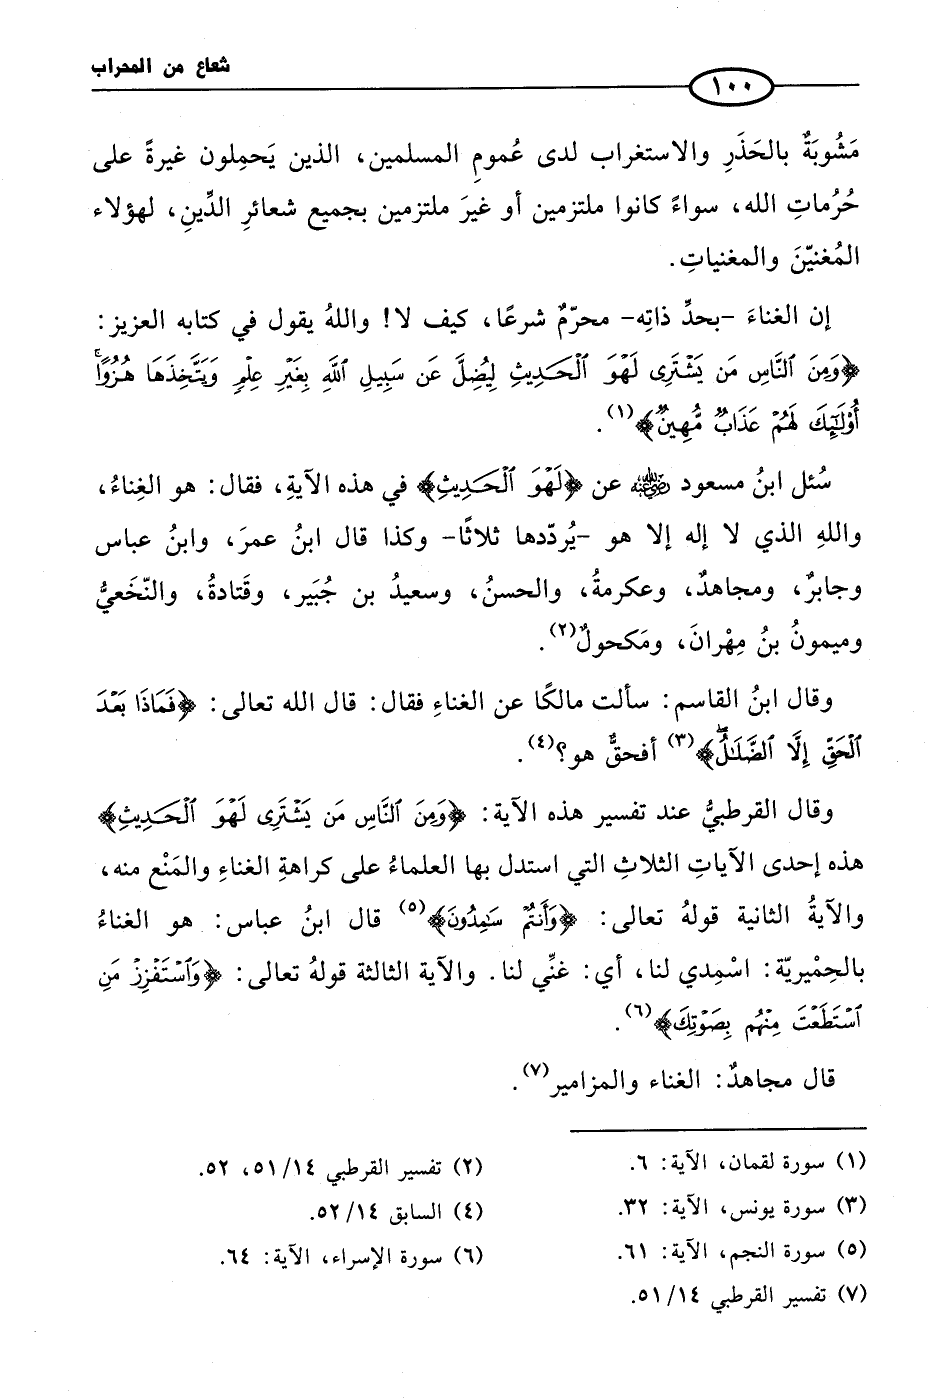 شعاع من المحراب
١٠٠
مَشُوبَةٌ بالحَذَرِ والاستغراب لدى عُمومِ المسلمين، الذين يَحمِلون غيرةً على
حُرُماتِ الله، سواءً كانوا ملتزمين أو غيرَ ملتزمين بجميع شعائرِ الدِّينِ، لهؤلاء
المُغنيّنَ والمغنياتِ.
إن الغناءَ -بحدِّ ذاتِه- محرّمٌ شرعًا، كيف لا! واللهُ يقول في كتابه العزيز:
﴿وَمِنَ ٱلنَّاسِ مَن يَشْتَرِى لَهْوَ ٱلْحَدِيثِ لِيُضِلَّ عَن سَبِيلِ ٱللَّهِ بِغَيْرِ عِلْمٍ وَيَتَّخِذَهَا هُزُوًا ۚ
أُوْلَٰٓئِكَ لَهُمْ عَذَابٌ مُّهِينٌ﴾(١).
سُئل ابنُ مسعود رضي الله عنه عن ﴿لَهْوَ ٱلْحَدِيثِ﴾ في هذه الآيةِ، فقال: هو الغِناءُ،
واللهِ الذي لا إله إلا هو -يُردّدها ثلاثًا- وكذا قال ابنُ عمرَ، وابنُ عباس
وجابرٌ، ومجاهدٌ، وعكرمةُ، والحسنُ، وسعيدُ بن جُبَير، وقَتادةُ، والنّخَعيُّ
وميمونُ بنُ مِهْرانَ، ومَكحولٌ(٢).
وقال ابنُ القاسم: سألت مالكًا عن الغناءِ فقال: قال الله تعالى: ﴿فَمَاذَا بَعْدَ
ٱلْحَقِّ إِلَّا ٱلضَّلَٰلُ ۖ﴾(٣) أفحقٌّ هو؟(٤).
وقال القرطبيُّ عند تفسير هذه الآية: ﴿وَمِنَ ٱلنَّاسِ مَن يَشْتَرِى لَهْوَ ٱلْحَدِيثِ﴾
هذه إحدى الآياتِ الثلاثِ التي استدل بها العلماءُ على كراهةِ الغناءِ والمَنْع منه،
والآيةُ الثانية قولهُ تعالى: ﴿وَأَنتُمْ سَٰمِدُونَ﴾(٥) قال ابنُ عباس: هو الغناءُ
بالحِمْيريّة: اسْمِدي لنا، أي: غنِّي لنا. والآية الثالثة قولهُ تعالى: ﴿وَٱسْتَفْزِزْ مَنِ
ٱسْتَطَعْتَ مِنْهُم بِصَوْتِكَ﴾(٦).
قال مجاهدٌ: الغناء والمزامير(٧).
(١) سورة لقمان، الآية: ٦.
(٢) تفسير القرطبي ٥١/١٤، ٥٢.
(٣) سورة يونس، الآية: ٣٢.
(٤) السابق ٥٢/١٤.
(٥) سورة النجم، الآية: ٦١.
(٦) سورة الإسراء، الآية: ٦٤.
(٧) تفسير القرطبي ٥١/١٤.